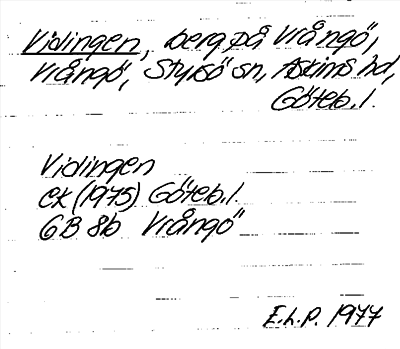 Vidingen, berg på Vrångö,
Vrångö, Styrsö sn, Askims hd,
Göteb. l.
Vidingen
EK (1975) Göteb. l.
6B 8b Vrångö
E.L.P. 1977